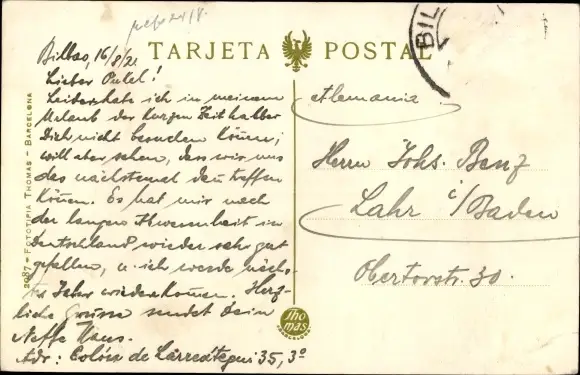 TARJETA POSTAL
BIL
Bilbao, 16/8/21
Lieber Onkel!
Leider hatte ich in meinem
Urlaub der kurzen Zeit halber
Dich nicht besuchen können;
will aber sehen, dass wir uns
das nächstemal dann treffen
können. Es hat mir nach
der langen Abwesenheit in
Deutschland wieder sehr gut
gefallen, u. ich werde nächs-
tes Jahr wiederkommen. Herz-
liche Grüsse sendet Dein
Neffe Hans.
Adr: Colón de Larreátegui 35, 3º
Alemania
Herrn Johs. Benz
Lahr i/Baden
Obertorstr. 30.
2087 - FOTOTIPIA THOMAS - BARCELONA
Thomas
BARCELONA